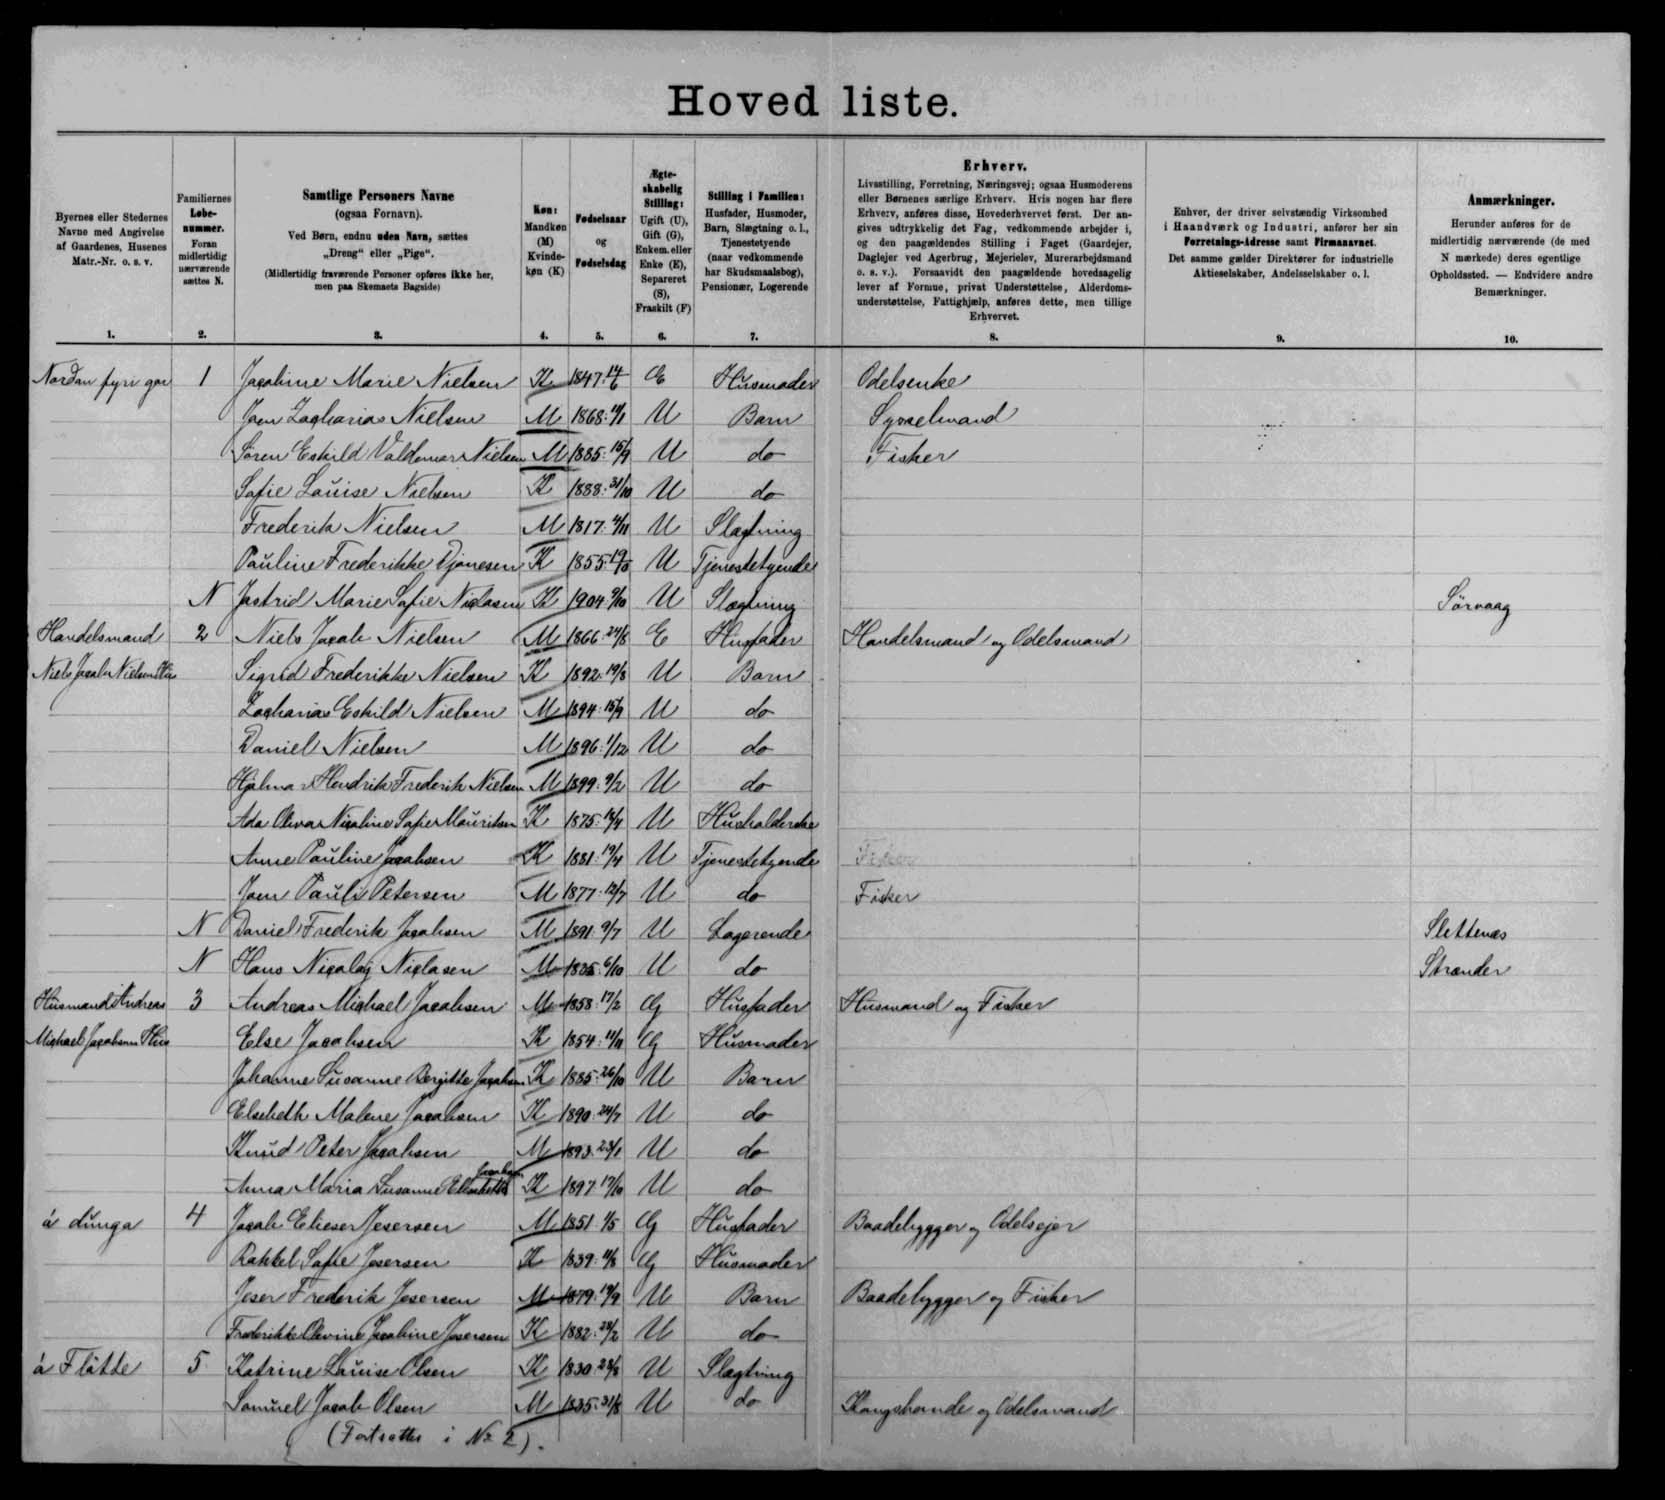 Hoved liste.
Byernes eller Stedernes Navne med Angivelse af Gaardenes, Husenes Matr.-Nr. o. s. v.
Familiernes Løbe-nummer. Foran midlertidig nærværende sættes N.
Samtlige Personers Navne (ogsaa Fornavn). Ved Børn, endnu uden Navn, sættes „Dreng“ eller „Pige“. (Midlertidig fraværende Personer opføres ikke her, men paa Skemaets Bagside)
Køn: Mandkøn (M) Kvinde-køn (K)
Fødselsaar og Fødselsdag
Ægte-skabelig Stilling: Ugift (U), Gift (G), Enkem. eller Enke (E), Separeret (S), Fraskilt (F)
Stilling i Familien: Husfader, Husmoder, Barn, Slægtning o. l., Tjenestetyende (naar vedkommende har Skudsmaalsbog), Pensionær, Logerende
Erhverv. Livsstilling, Forretning, Næringsvej; ogsaa Husmoderens eller Børnenes særlige Erhverv. Hvis nogen har flere Erhverv, anføres disse, Hovederhvervet først. Der angives udtrykkelig det Fag, vedkommende arbejder i, og den paagældendes Stilling i Faget (Gaardejer, Daglejer ved Agerbrug, Mejerielev, Murerarbejdsmand o. s. v.). Forsaavidt den paagældende hovedsagelig lever af Formue, privat Understøttelse, Alderdomsunderstøttelse, Fattighjælp, anføres dette, men tillige Erhvervet.
Enhver, der driver selvstændig Virksomhed i Haandværk og Industri, anfører her sin Forretnings-Adresse samt Firmanavnet. Det samme gælder Direktører for industrielle Aktieselskaber, Andelsselskaber o. l.
Anmærkninger. Herunder anføres for de midlertidig nærværende (de med N mærkede) deres egentlige Opholdssted. — Endvidere andre Bemærkninger.
1. 2. 3. 4. 5. 6. 7. 8. 9. 10.
Nordan fyri gar 1 Jacobine Marie Nielsen K 1847 14/6 E Husmoder Odelsenke
Joen Zacharias Nielsen M 1868 U Barn Sysselmand
Søren Eskild Valdemar Nielsen M 1885 15/9 U do Fisker
Sofie Louise Nielsen K 1888 31/10 U do
Frederik Nielsen M 1817 U Slægtning
Pauline Frederikke Djonesen K 1855 U Tjenestetyende
N Jastrid Marie Sofie Niclasen K 1904 9/10 U Slægtning Sörvaag
Handelsmand 2 Niels Jacob Nielsen M 1866 24/8 E Husfader Handelsmand og Odelsmand
Niels Jacob Nielsens Hus Sigrid Frederikke Nielsen K 1892 19/8 U Barn
Zacharias Eskild Nielsen M 1894 15/9 U do
Daniel Nielsen M 1896 1/12 U do
Hjalmar Hendrik Frederik Nielsen M 1899 9/2 U do
Ada Nicoline Sofie Mouritsen K 1875 18/4 U Husholderske
Anne Pauline Jacobsen K 1881 19/4 U Tjenestetyende Fisker
Joen Pauli Petersen M 1877 12/7 U do Fisker
N Daniel Frederik Jacobsen M 1891 9/7 U Logerende Slettenæs
N Hans Nicolaj Niclasen M 1885 6/10 U do Strænder
Husmand Andreas 3 Andreas Michael Jacobsen M 1858 17/2 G Husfader Husmand og Fisker
Michael Jacobsens Hus Else Jacobsen K 1854 11/11 G Husmoder
Johanne Susanne Bergitte Jacobsen K 1885 26/10 U Barn
Elsebeth Malene Jacobsen K 1890 24/7 U do
Knud Peter Jacobsen M 1893 23/1 U do
Anna Maria Susanne Elisabeth Jacobsen K 1897 17/10 U do
á dunga 4 Jacob Elieser Joensen M 1851 1/5 G Husfader Baadebygger og Odelsejer
Rakkel Sofie Joensen K 1839 11/8 G Husmoder
Joser Frederik Joensen M 1879 19/9 U Barn Baadebygger og Fisker
Frederikke Olevine Jacobine Joensen K 1882 24/2 U do
á Fløtte 5 Katrine Louise Olsen K 1830 U Slægtning
Samuel Jacob Olsen M 1835 31/8 U do Kongsbonde og Odelsmand
(Fortsættes i No 2).